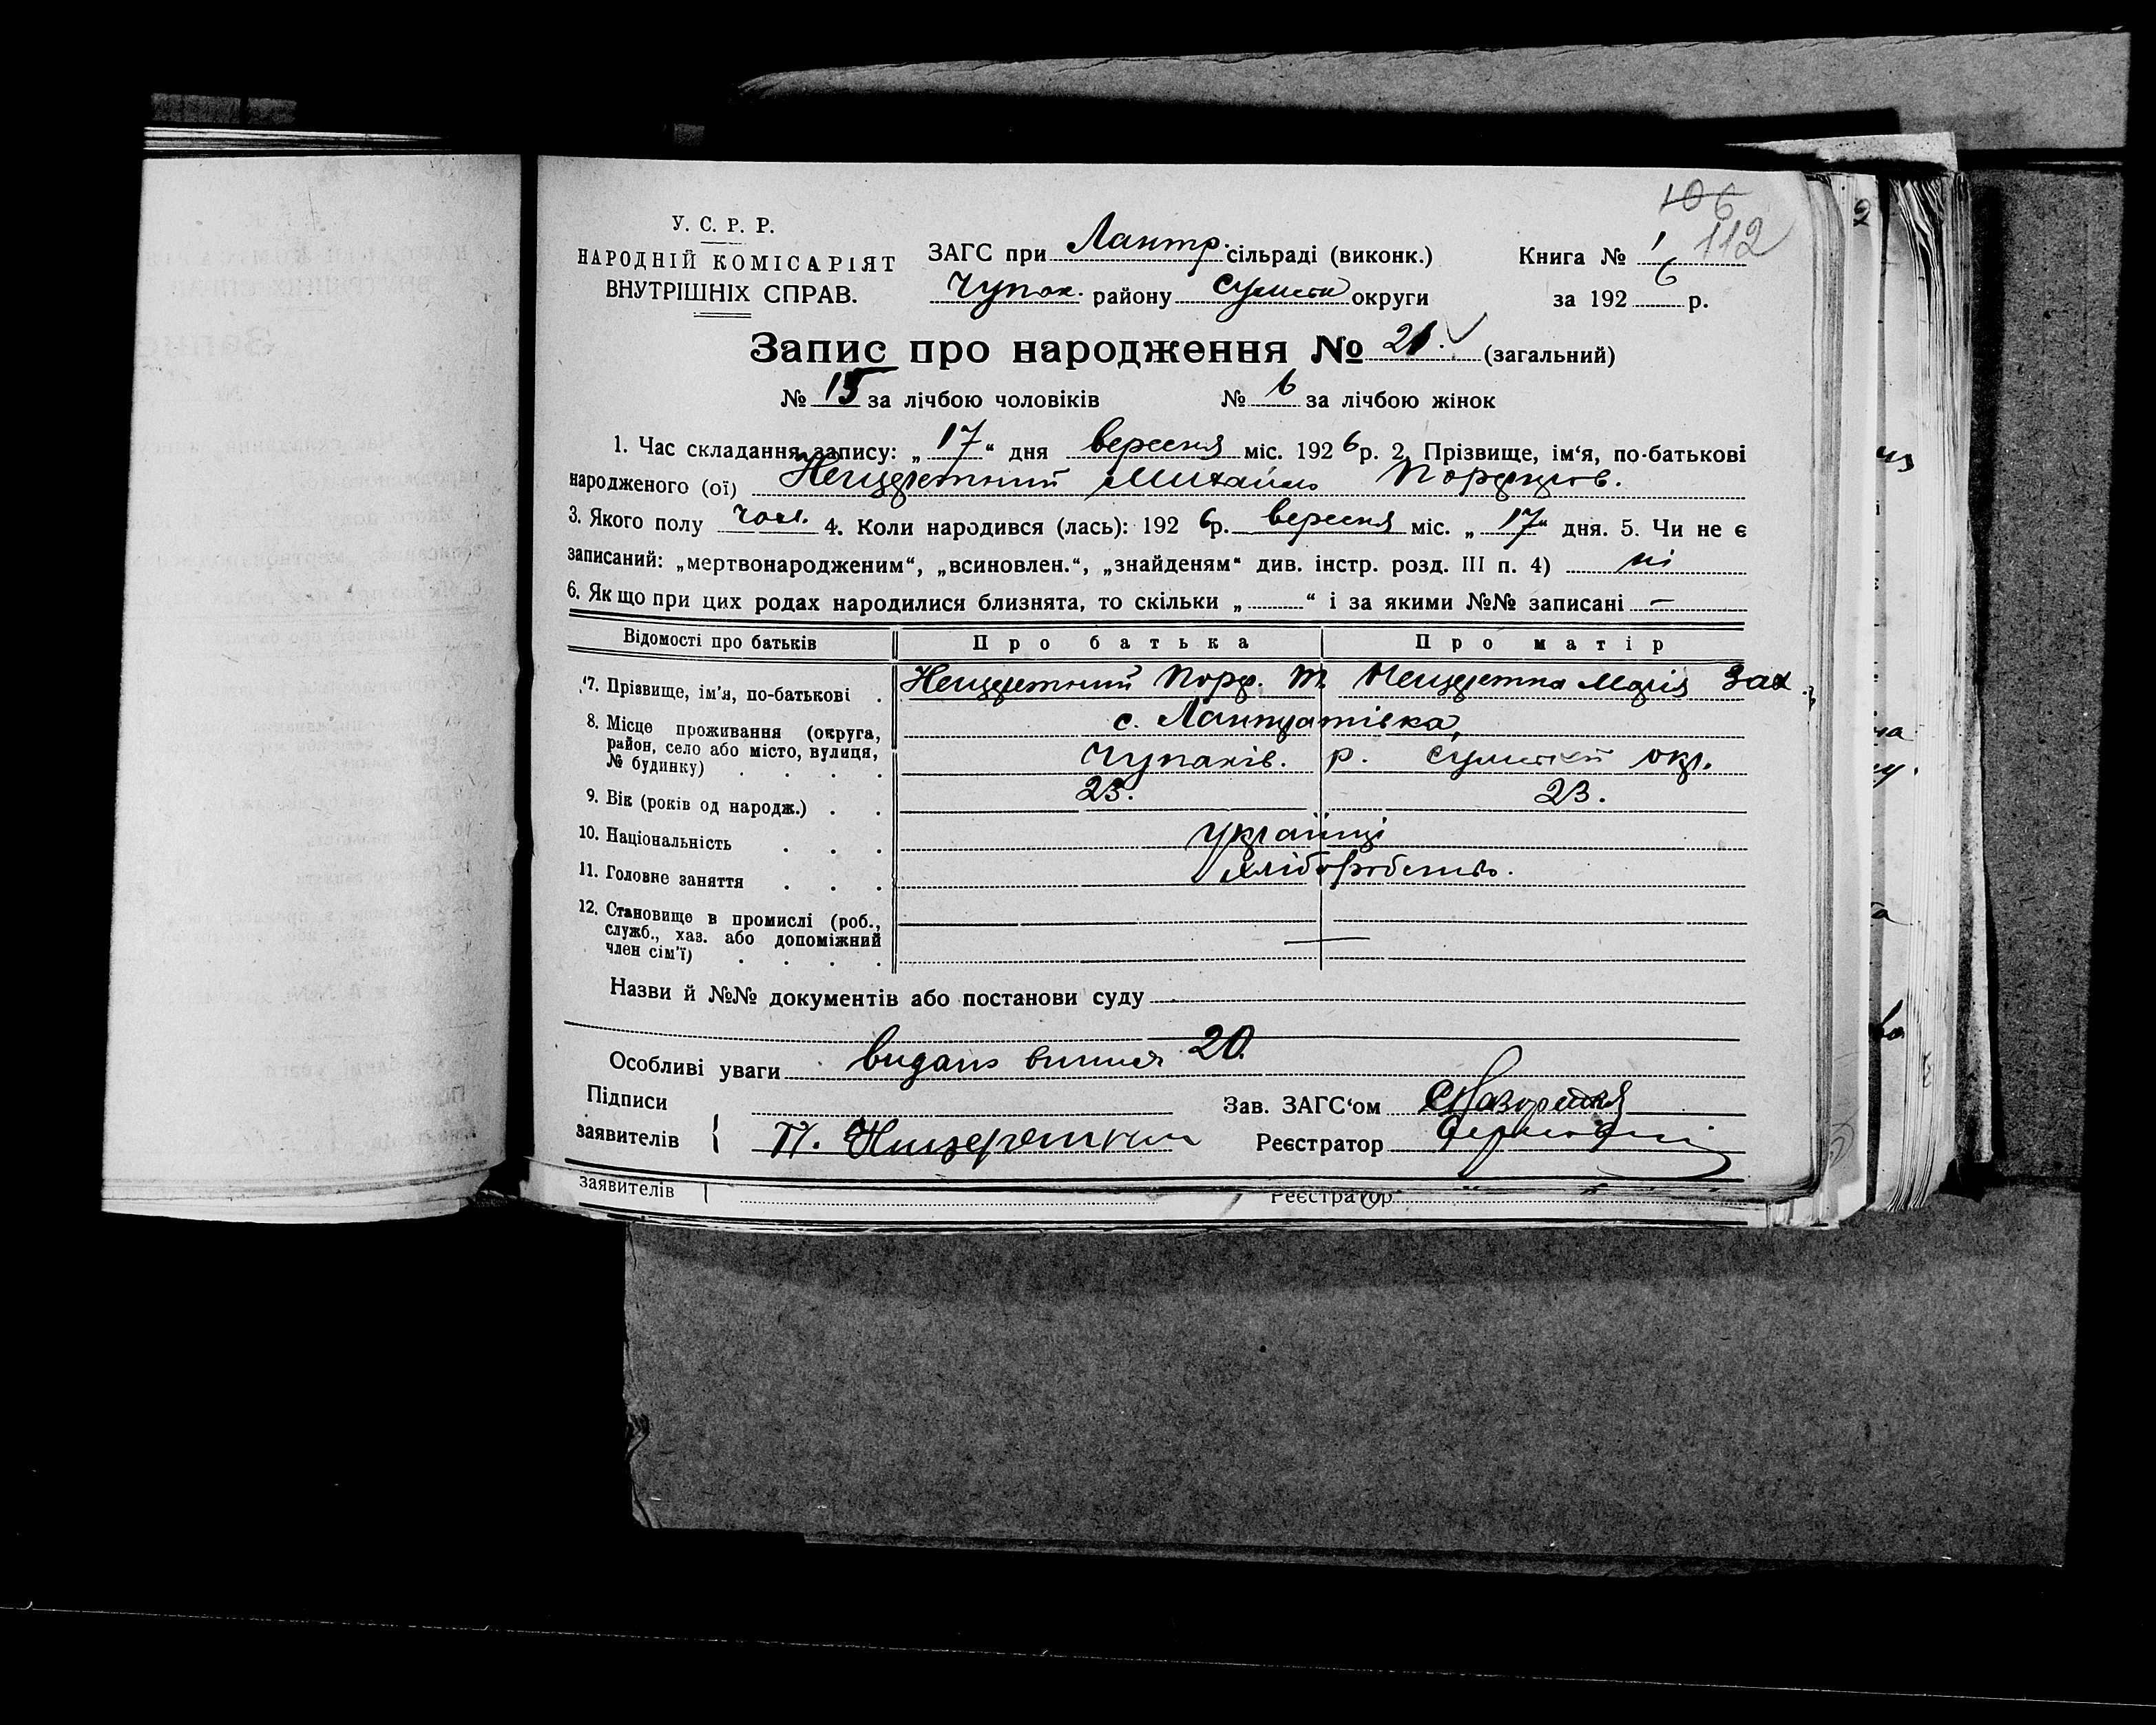 106
112
2
У. С. Р. Р.
НАРОДНІЙ КОМІСАРІЯТ
ВНУТРІШНІХ СПРАВ.
ЗАГС при Лантр. сільраді (виконк.)
Чупах. району Сумськ округи
Книга № 1
за 1926 р.
Запис про народження № 21. (загальний)
№ 15 за лічбою чоловіків № 6 за лічбою жінок
1. Час складання запису: „17“ дня вересня міс. 1926 р. 2. Прізвище, ім‘я, по-батькові
народженого (ої) Нещеретний Михайло Порфиров.
3. Якого полу чол. 4. Коли народився (лась): 1926 р. вересня міс. „17“ дня. 5. Чи не є
записаний: „мертвонародженим“, „всиновлен.“, „знайденям“ див. інстр. розд. III п. 4) ні
6. Як що при цих родах народилися близнята, то скільки „ “ і за якими №№ записані –
Відомості про батьків Про батька Про матір
7. Прізвище, ім'я, по-батькові Нещеретний Порф. Нещеретна Марія Зах.
8. Місце проживання (округа,
район, село або місто, вулиця,
№ будинку)
с. Лантратівка,
Чупахів. р. Сумської окр.
9. Вік (років од народж.) 23. 23.
10. Національність українці
11. Головне заняття хліборобство.
12. Становище в промислі (роб.,
служб., хаз. або допоміжний
член сім'ї)
Назви й №№ документів або постанови суду
Особливі уваги видано 20.
Підписи
заявителів П.
Зав. ЗАГС‘ом
Реєстратор
заявителів Реєстратор